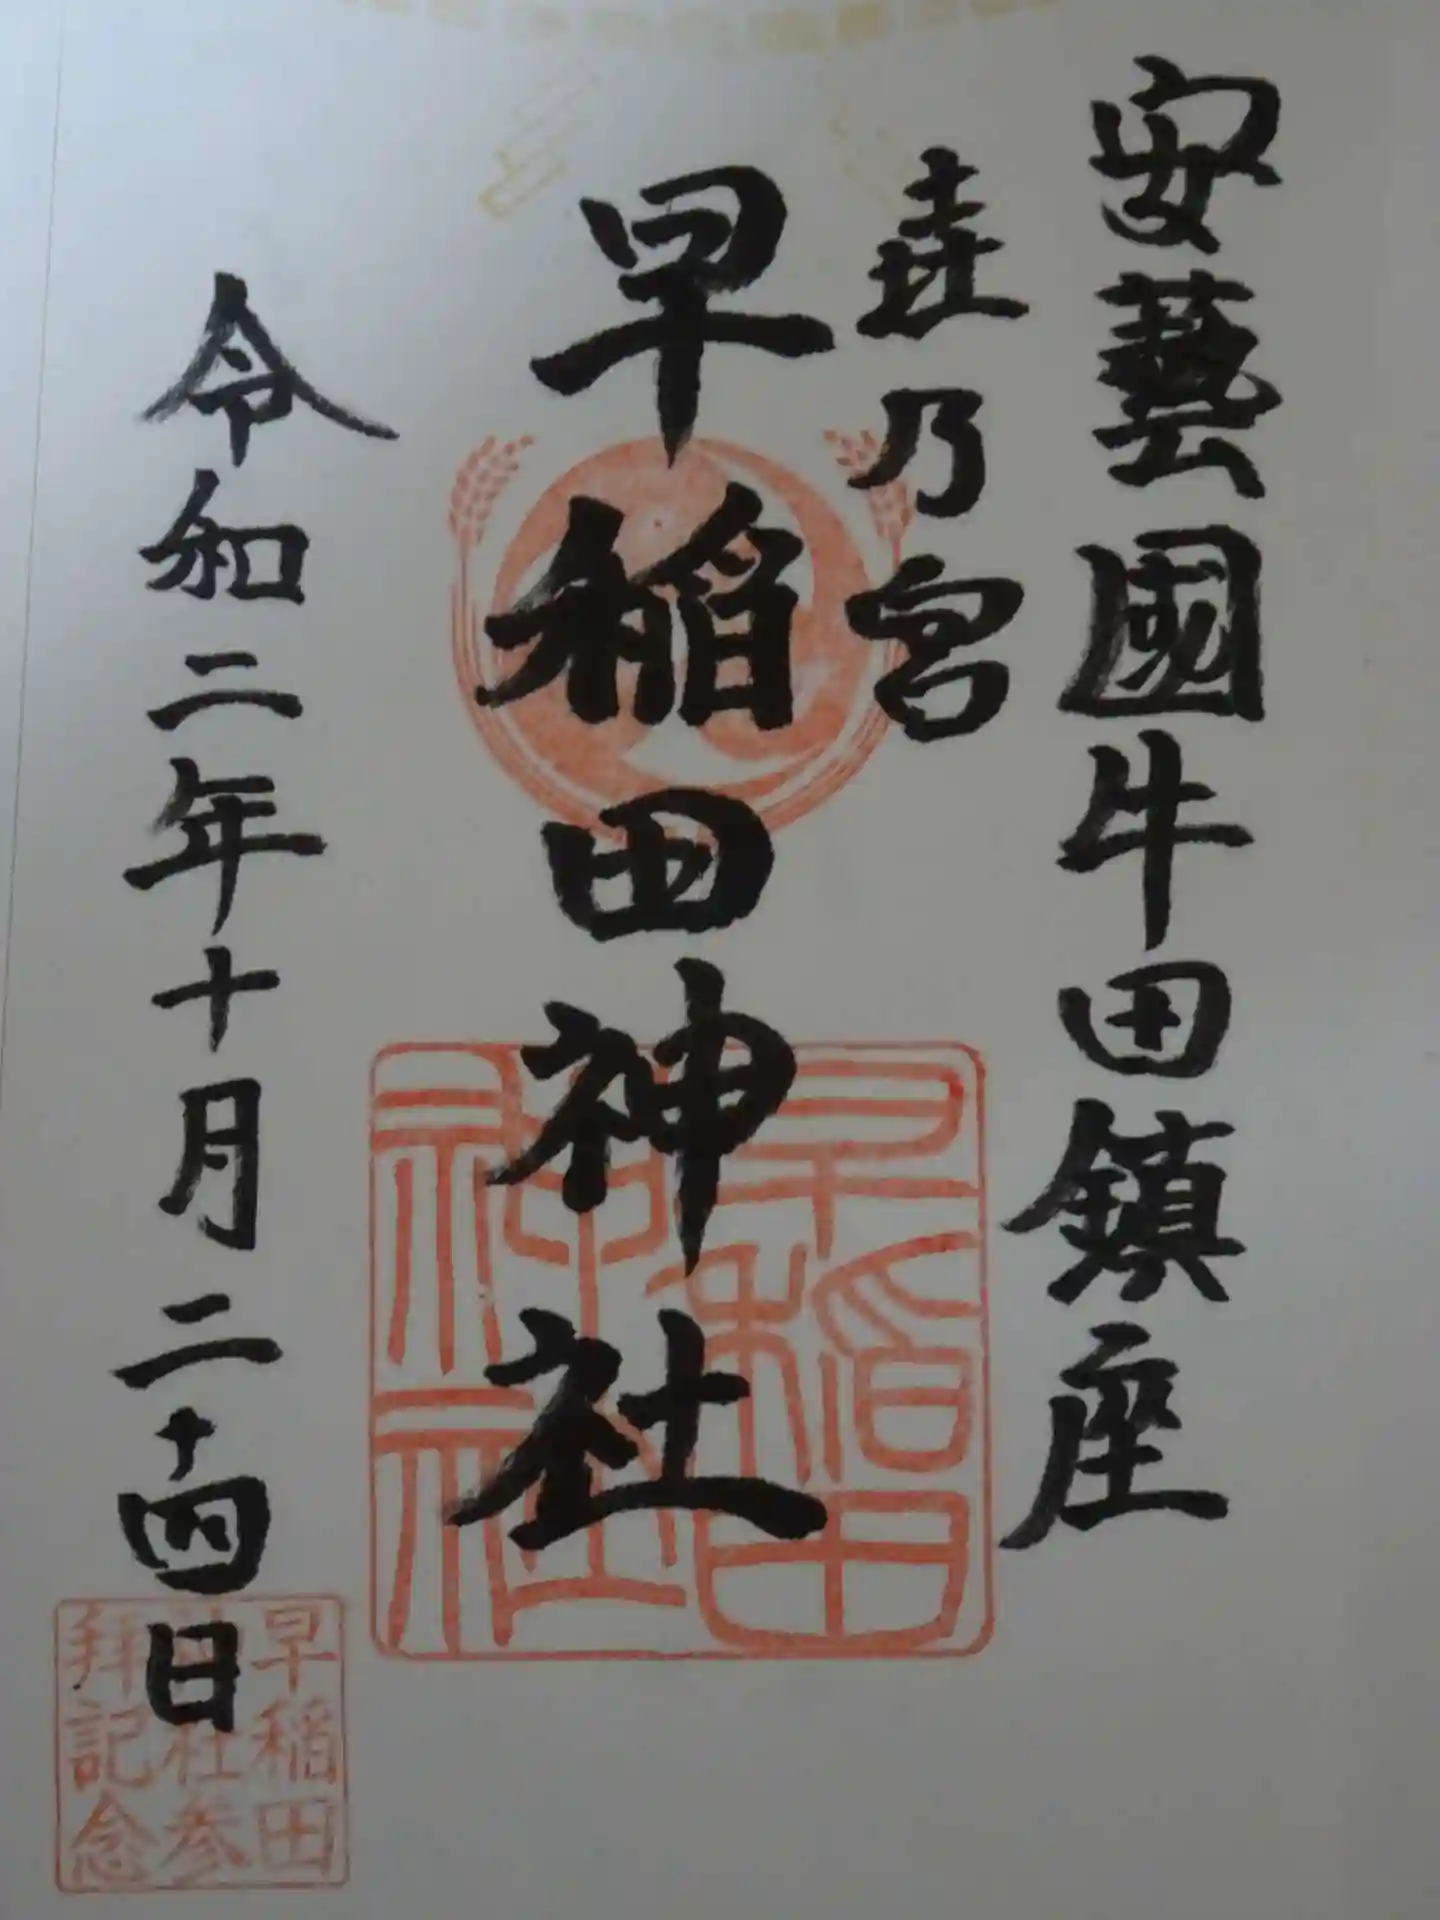 安藝國牛田鎮座
乃宮
早稲田神社
令和二年十月二十四日
早稲田
神社
早稲田
神社参
拝記念